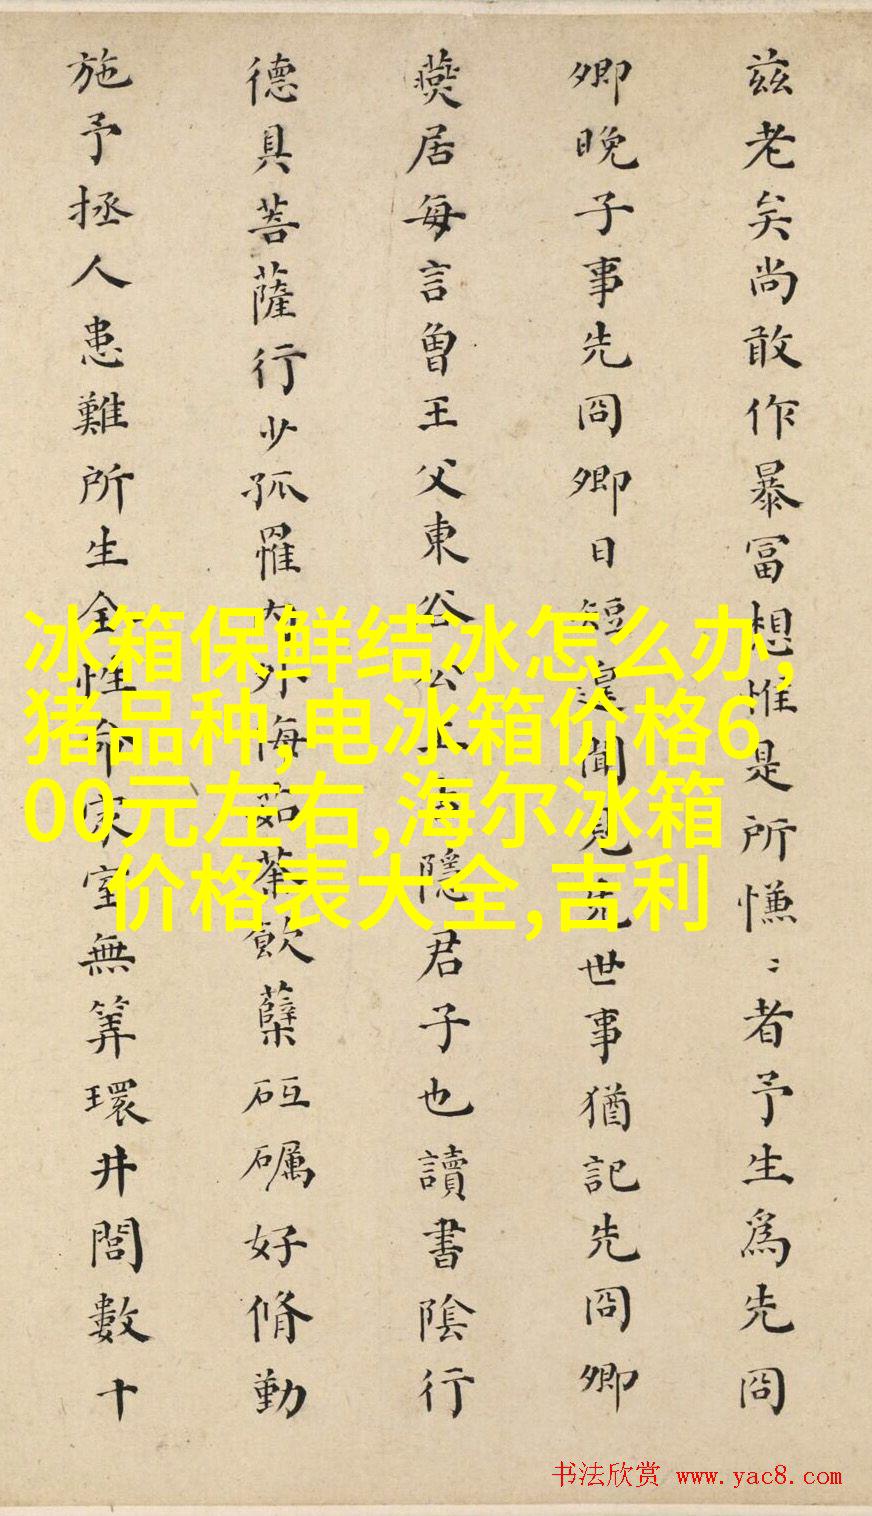 兹老矣尚敢作暴冨想惟是所慊〻者予生為先冏
卿晚子事先冏卿日短遑聞見先世事猶記先冏卿
燕居每言曾王父東谷公隱君子也讀書陰行
德具菩薩行少孤罹内外侮茹荼飲蘗砥礪好脩勤
施予拯人患難所生全性命家室無筭環井閭數十
冰箱保鲜结冰怎么办,
猪品种,电冰箱价格6
00元左右,海尔冰箱
价格表大全,吉利
书法欣赏 www.yac8.com